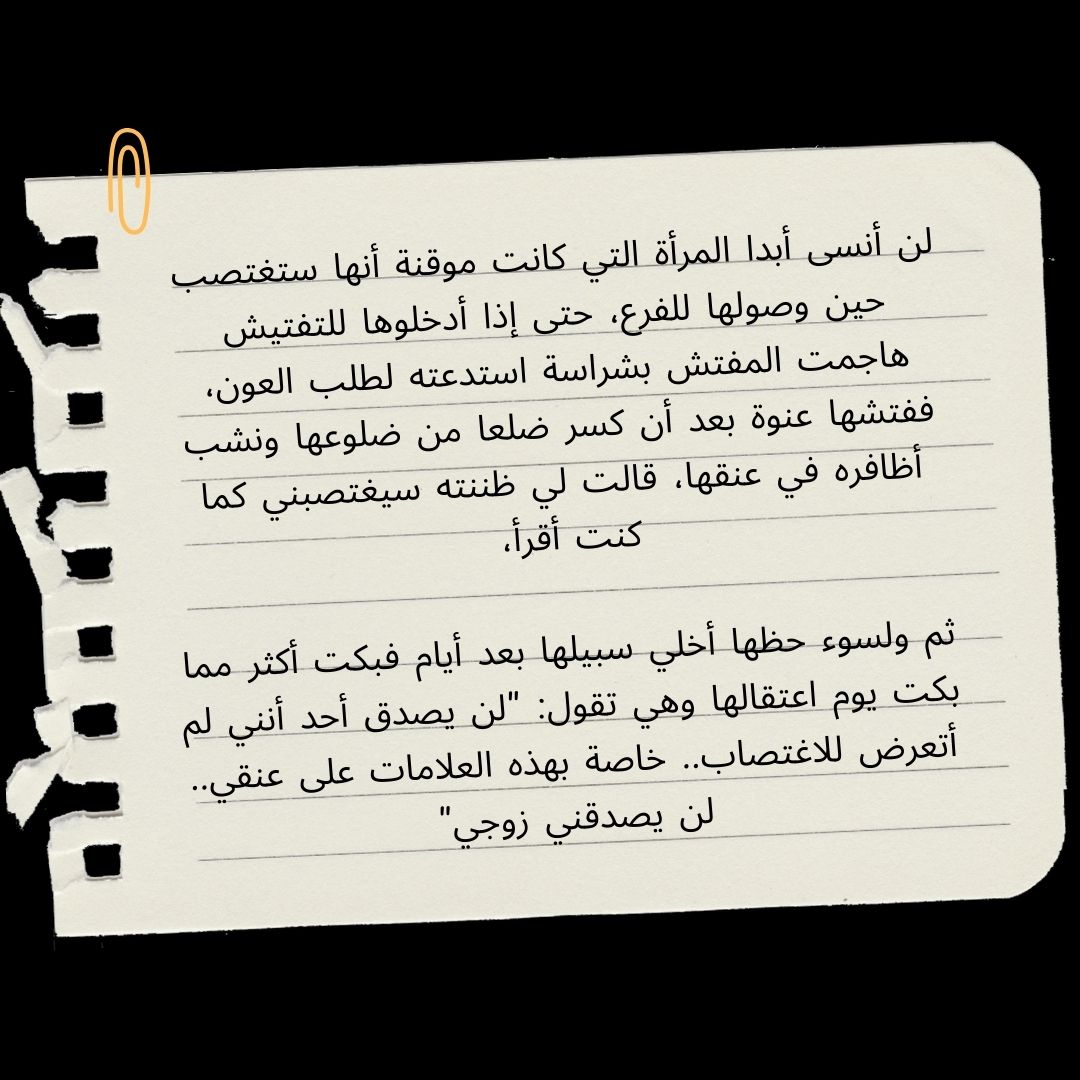 لن أنسى أبدا المرأة التي كانت موقنة أنها ستغتصب
حين وصولها للفرع، حتى إذا أدخلوها للتفتيش
هاجمت المفتش بشراسة استدعته لطلب العون،
ففتشها عنوة بعد أن كسر ضلعا من ضلوعها ونشب
أظافره في عنقها، قالت لي ظننته سيغتصبني كما
كنت أقرأ،
ثم ولسوء حظها أخلي سبيلها بعد أيام فبكت أكثر مما
بكت يوم اعتقالها وهي تقول: "لن يصدق أحد أنني لم
أتعرض للاغتصاب.. خاصة بهذه العلامات على عنقي..
لن يصدقني زوجي"